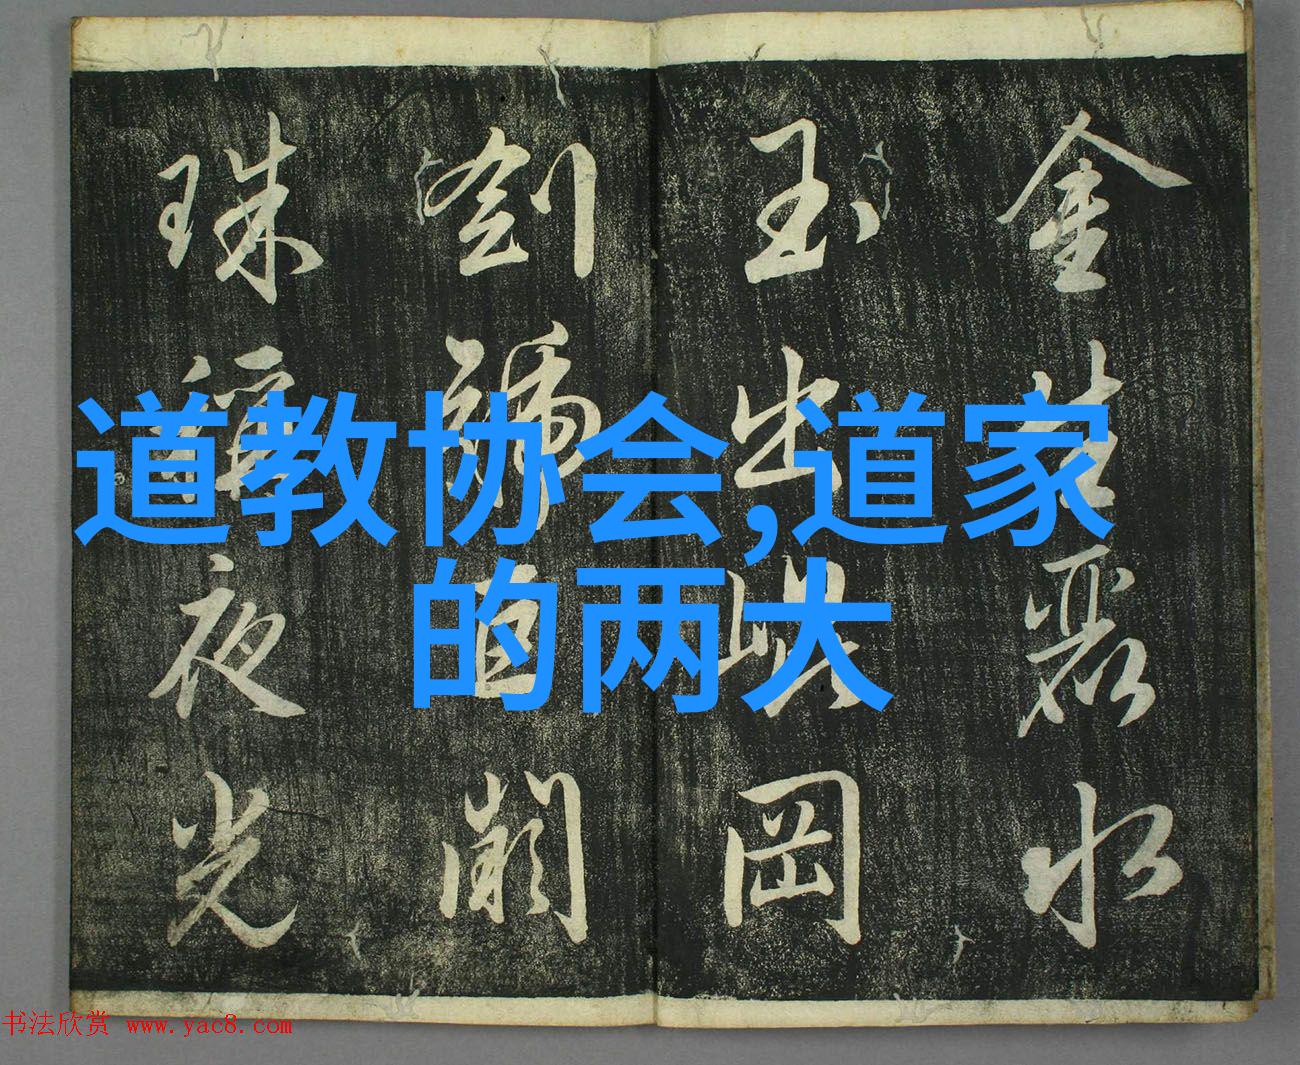 道教协会,道家
的两大
金生麗水
玉出崐岡
劍號巨闕
珠稱夜光
书法欣赏 www.yac8.com